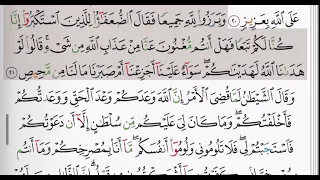 عَلَى ٱللَّهِ بِعَزِيزٍ ٢٠ وَبَرَزُوا۟ لِلَّهِ جَمِيعًا فَقَالَ ٱلضُّعَفَٰٓؤُا۟ لِلَّذِينَ ٱسْتَكْبَرُوٓا۟ إِنَّا
كُنَّا لَكُمْ تَبَعًا فَهَلْ أَنتُم مُّغْنُونَ عَنَّا مِنْ عَذَابِ ٱللَّهِ مِن شَىْءٍ ۚ قَالُوا۟ لَوْ
هَدَىٰنَا ٱللَّهُ لَهَدَيْنَٰكُمْ ۖ سَوَآءٌ عَلَيْنَآ أَجَزِعْنَآ أَمْ صَبَرْنَا مَا لَنَا مِن مَّحِيصٍ ٢١
وَقَالَ ٱلشَّيْطَٰنُ لَمَّا قُضِىَ ٱلْأَمْرُ إِنَّ ٱللَّهَ وَعَدَكُمْ وَعْدَ ٱلْحَقِّ وَوَعَدتُّكُمْ
فَأَخْلَفْتُكُمْ ۖ وَمَا كَانَ لِىَ عَلَيْكُم مِّن سُلْطَٰنٍ إِلَّآ أَن دَعَوْتُكُمْ
فَٱسْتَجَبْتُمْ لِى ۖ فَلَا تَلُومُونِى وَلُومُوٓا۟ أَنفُسَكُم ۖ مَّآ أَنَا۠ بِمُصْرِخِكُمْ وَمَآ أَنتُم